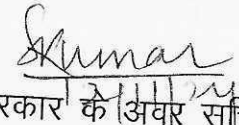 SKumar
रकार के अवर सचि